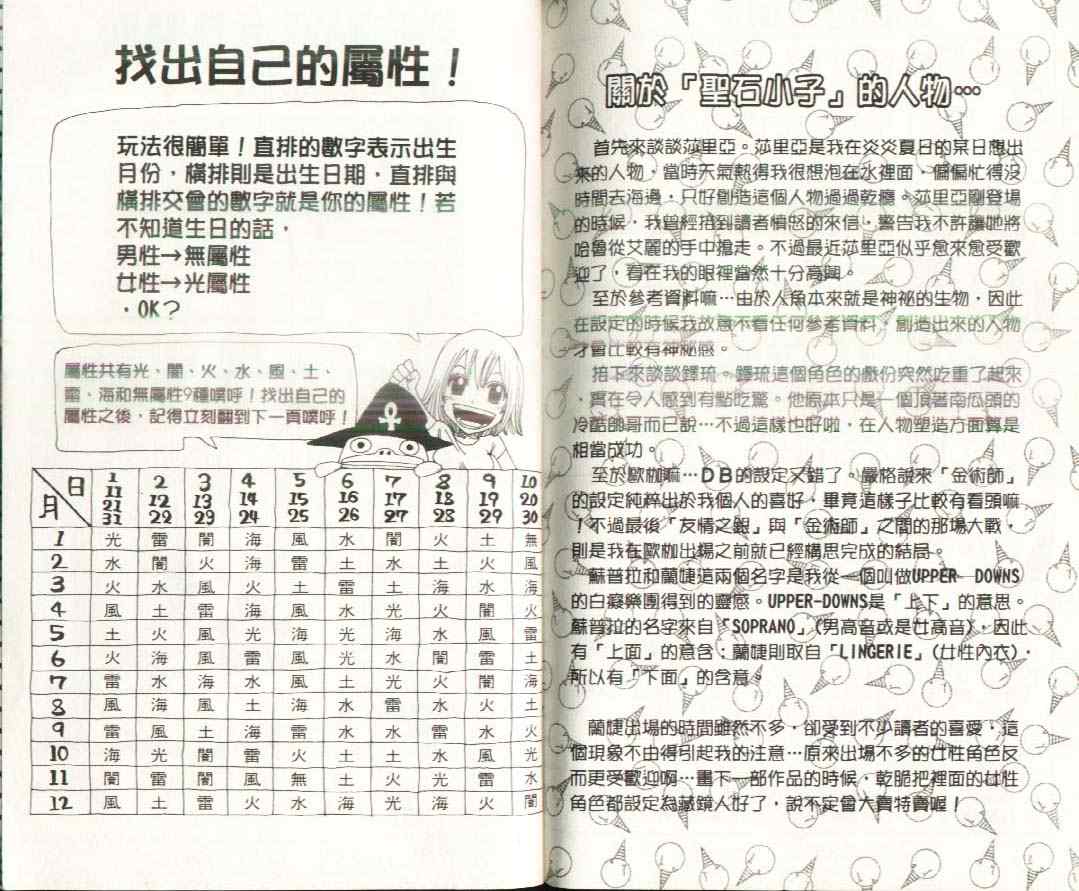 找出自己的屬性！
玩法很簡單！直排的數字表示出生
月份，橫排則是出生日期，直排與
橫排交會的數字就是你的屬性！若
不知道生日的話，
男性→無屬性
女性→光屬性
，OK？
屬性共有光、闇、火、水、風、土、
雷、海和無屬性9種噗呼！找出自己的
屬性之後，記得立刻翻到下一頁噗呼！
月 日 1 11 21 31 2 12 22 3 13 23 4 14 24 5 15 25 6 16 26 7 17 27 8 18 28 9 19 29 10 20 30
1 光 雷 闇 海 風 水 闇 火 土 無
2 水 闇 火 海 雷 土 水 土 火 風
3 火 水 風 火 土 雷 土 海 水 海
4 風 土 雷 海 風 水 光 火 闇 火
5 土 火 風 光 海 光 海 水 風 雷
6 火 海 風 雷 風 光 水 闇 雷 土
7 雷 水 海 水 風 土 光 火 闇 海
8 風 海 風 土 海 水 雷 水 火 土
9 雷 風 土 海 雷 水 水 雷 水 火
10 海 光 闇 雷 火 土 土 水 風 光
11 闇 雷 闇 風 無 土 火 光 雷 水
12 風 土 雷 火 水 海 光 海 火 闇
關於「聖石小子」的人物…
首先來談談莎里亞。莎里亞是我在炎炎夏日的某日想出
來的人物，當時天氣熱得我很想泡在水裡面，偏偏忙得沒
時間去海邊，只好創造這個人物過過乾癮。莎里亞剛登場
的時候，我曾經接到讀者憤怒的來信，警告我不許讓她將
哈魯從艾麗的手中搶走。不過最近莎里亞似乎愈來愈受歡
迎了，看在我的眼裡當然十分高興。
至於參考資料嘛…由於人魚本來就是神祕的生物，因此
在設定的時候我故意不看任何參考資料，創造出來的人物
才會比較有神祕感。
接下來談談鐸琉。鐸琉這個角色的戲份突然吃重了起來
，實在令人感到有點吃驚。他原本只是一個頂著南瓜頭的
冷酷帥哥而已說…不過這樣也好啦，在人物塑造方面算是
相當成功。
至於歐枷嘛…DB的設定又錯了。嚴格說來「金術師」
的設定純粹出於我個人的喜好，畢竟這樣子比較有看頭嘛
！不過最後「友情之銀」與「金術師」之間的那場大戰，
則是我在歐枷出場之前就已經構思完成的結局。
蘇普拉和蘭婕這兩個名字是我從一個叫做UPPER DOWNS
的白癡樂團得到的靈感。UPPER-DOWNS是「上下」的意思。
蘇普拉的名字來自「SOPRANO」(男高音或是女高音)，因此
有「上面」的意含；蘭婕則取自「LINGERIE」(女性內衣)，
所以有「下面」的含意。
蘭婕出場的時間雖然不多，卻受到不少讀者的喜愛，這
個現象不由得引起我的注意…原來出場不多的女性角色反
而更受歡迎啊…畫下一部作品的時候，乾脆把裡面的女性
角色都設定為藏鏡人好了，說不定會大賣特賣喔！